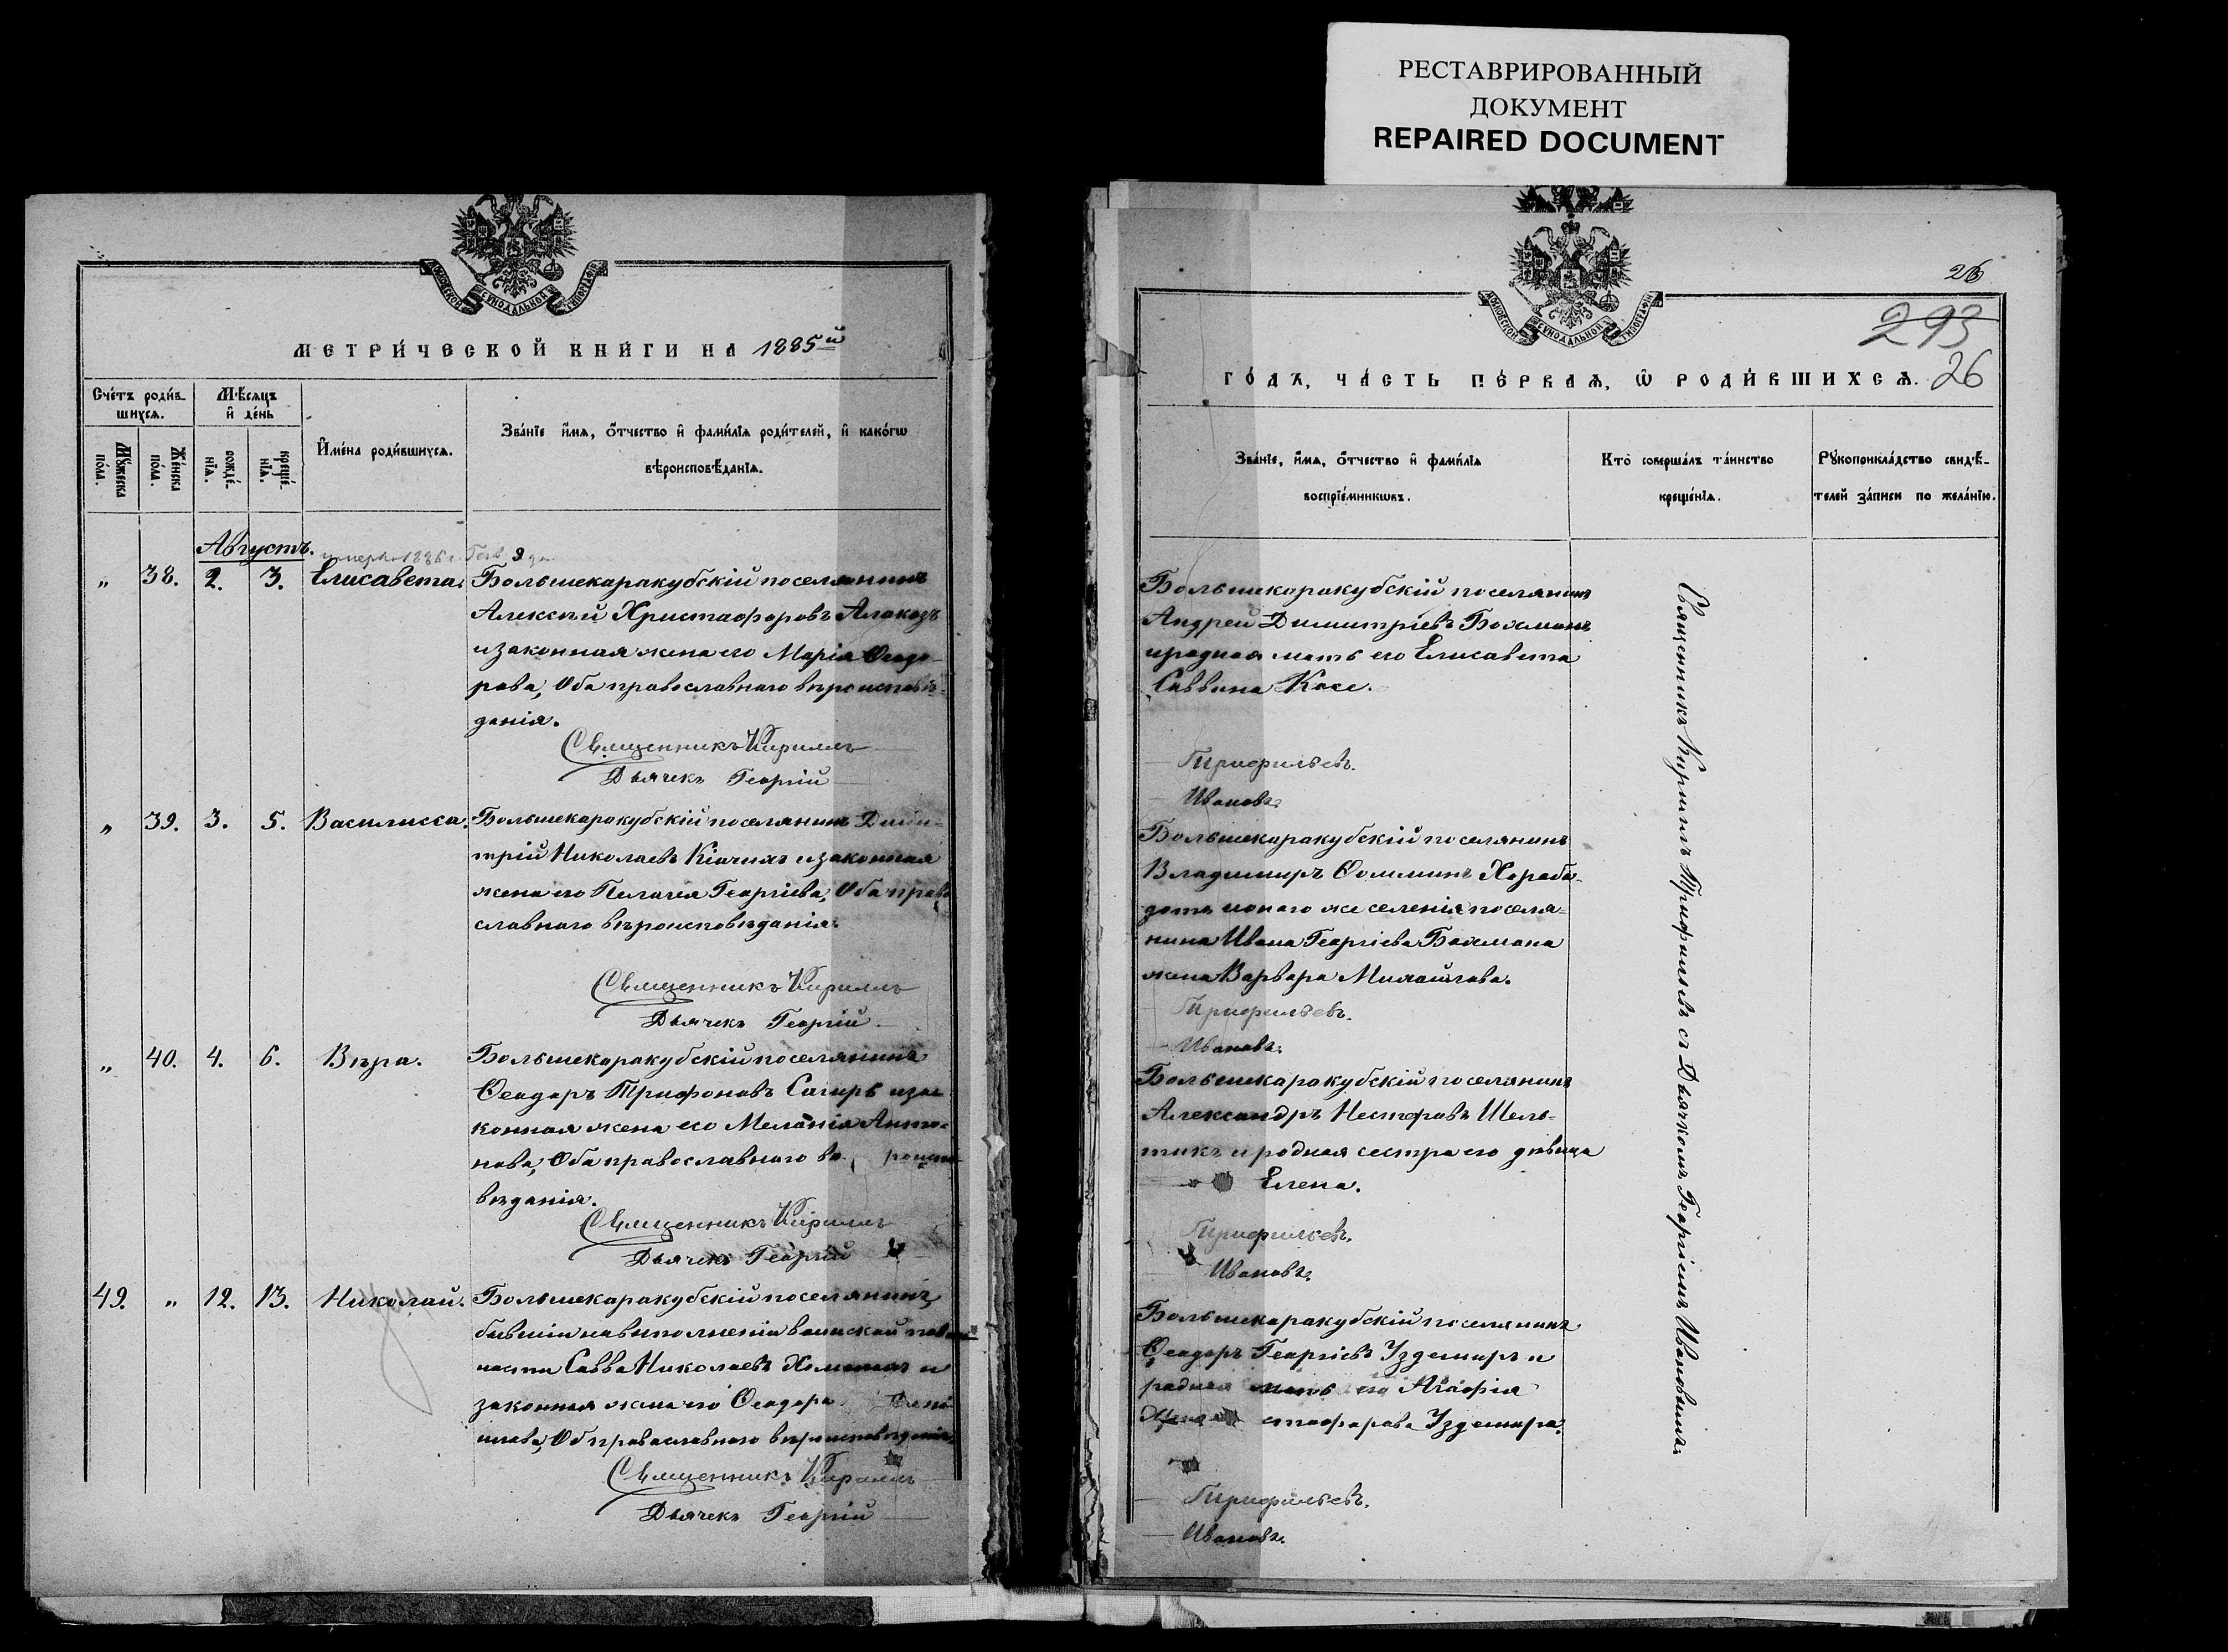 РЕСТАВРИРОВАННЫЙ
ДОКУМЕНТ
REPAIRED DOCUMENT
МОСКОВСКОЙ СУНОДАЛЬНОЙ ТИПОГРАФІИ
МЕТРИ́ЧЕСКОЙ КНИ́ГИ НА 1885й
Сче́тъ роди́в-
шихся.
Мѣ́сяцъ
и҆ де́нь
Мꙋ́жеска
по́ла.
Же́нска
по́ла.
рожде́-
нїѧ.
креще́-
нїѧ.
И҆мена̀ роди́вшихся.
Зва́нїе и҆́мѧ, ѻ҆́тчество и҆ фами́лїѧ роди́телей, и҆ како́гѡ
вѣроисповѣ́данїѧ.
Августъ.
„ 38. 2. 3. Елисавета. Большекаракубскій поселянинъ
Алексѣй Христофоровъ Алакозъ
и законная жена его Марія Ѳеодо-
рова, Оба православнаго вѣроисповѣ-
данія.
Священникъ Кириллъ
Дьячекъ Георгій
„ 39. 3. 5. Василисса. Большекаракубскій поселянинъ Дими-
трій Николаевъ Кіачихъ и законная
жена его Пелагія Георгіева, Оба право
славнаго вѣроисповѣданія.
Священникъ Кириллъ
Дьячекъ Георгій
„ 40. 4. 6. Вѣра. Большекаракубскій поселянинъ
Ѳеодоръ Трифоновъ Сагиръ и за
конная жена его Меланія Анто-
нова, Оба православнаго вѣроиспо-
вѣданія.
Священникъ Кириллъ
Дьячекъ Георгій
49. „ 12. 13. Николай. Большекаракубскій поселянинъ,
бывшій на выполненіи воинской пов
ности Савва Николаевъ и
законная жена его Ѳеодора
Оба православнаго вѣроисповѣданія.
Священникъ Кириллъ
Дьячекъ Георгій
МОСКОВСКОЙ СУНОДАЛЬНОЙ ТИПОГРАФІИ
26
293
26
ГО́ДЪ, ЧА́СТЬ ПЕ́РВАѦ, Ѡ҆ РОДИ́ВШИХСѦ.
Зва́нїе, и҆́мѧ, ѻ҆́тчество и҆ фами́лїѧ
воспрїе́мникѡвъ.
Кто̀ соверша́лъ та́инство
креще́нїѧ.
Рꙋкоприкла́дство свидѣ́-
телей за́писи по жела́нїю.
Большекаракубскій поселянинъ
Андрей Димитріевъ Бахманъ
и родная мать его Елисавета
Саввина Косе.
Трифильевъ.
Ивановъ.
Большекаракубскій поселянинъ
Владимиръ Ѳоминъ Хараба-
дотъ и онаго же селенія поселя-
нина Ивана Георгіева Бахмана
жена Варвара Михайлова.
Трифильевъ.
Ивановъ.
Большекаракубскій поселянинъ
Александръ Несторовъ Шель-
тикъ и родная сестра его дѣвица
Елена.
Трифильевъ.
Ивановъ.
Большекаракубскій поселянинъ
Ѳеодоръ Георгіевъ Уздемиръ и
родная мать его Агафія
стофорова Уздемира.
Трифильевъ.
Ивановъ.
Священникъ Кириллъ Трифильевъ съ Дьячкомъ Георгіемъ Ивановымъ.